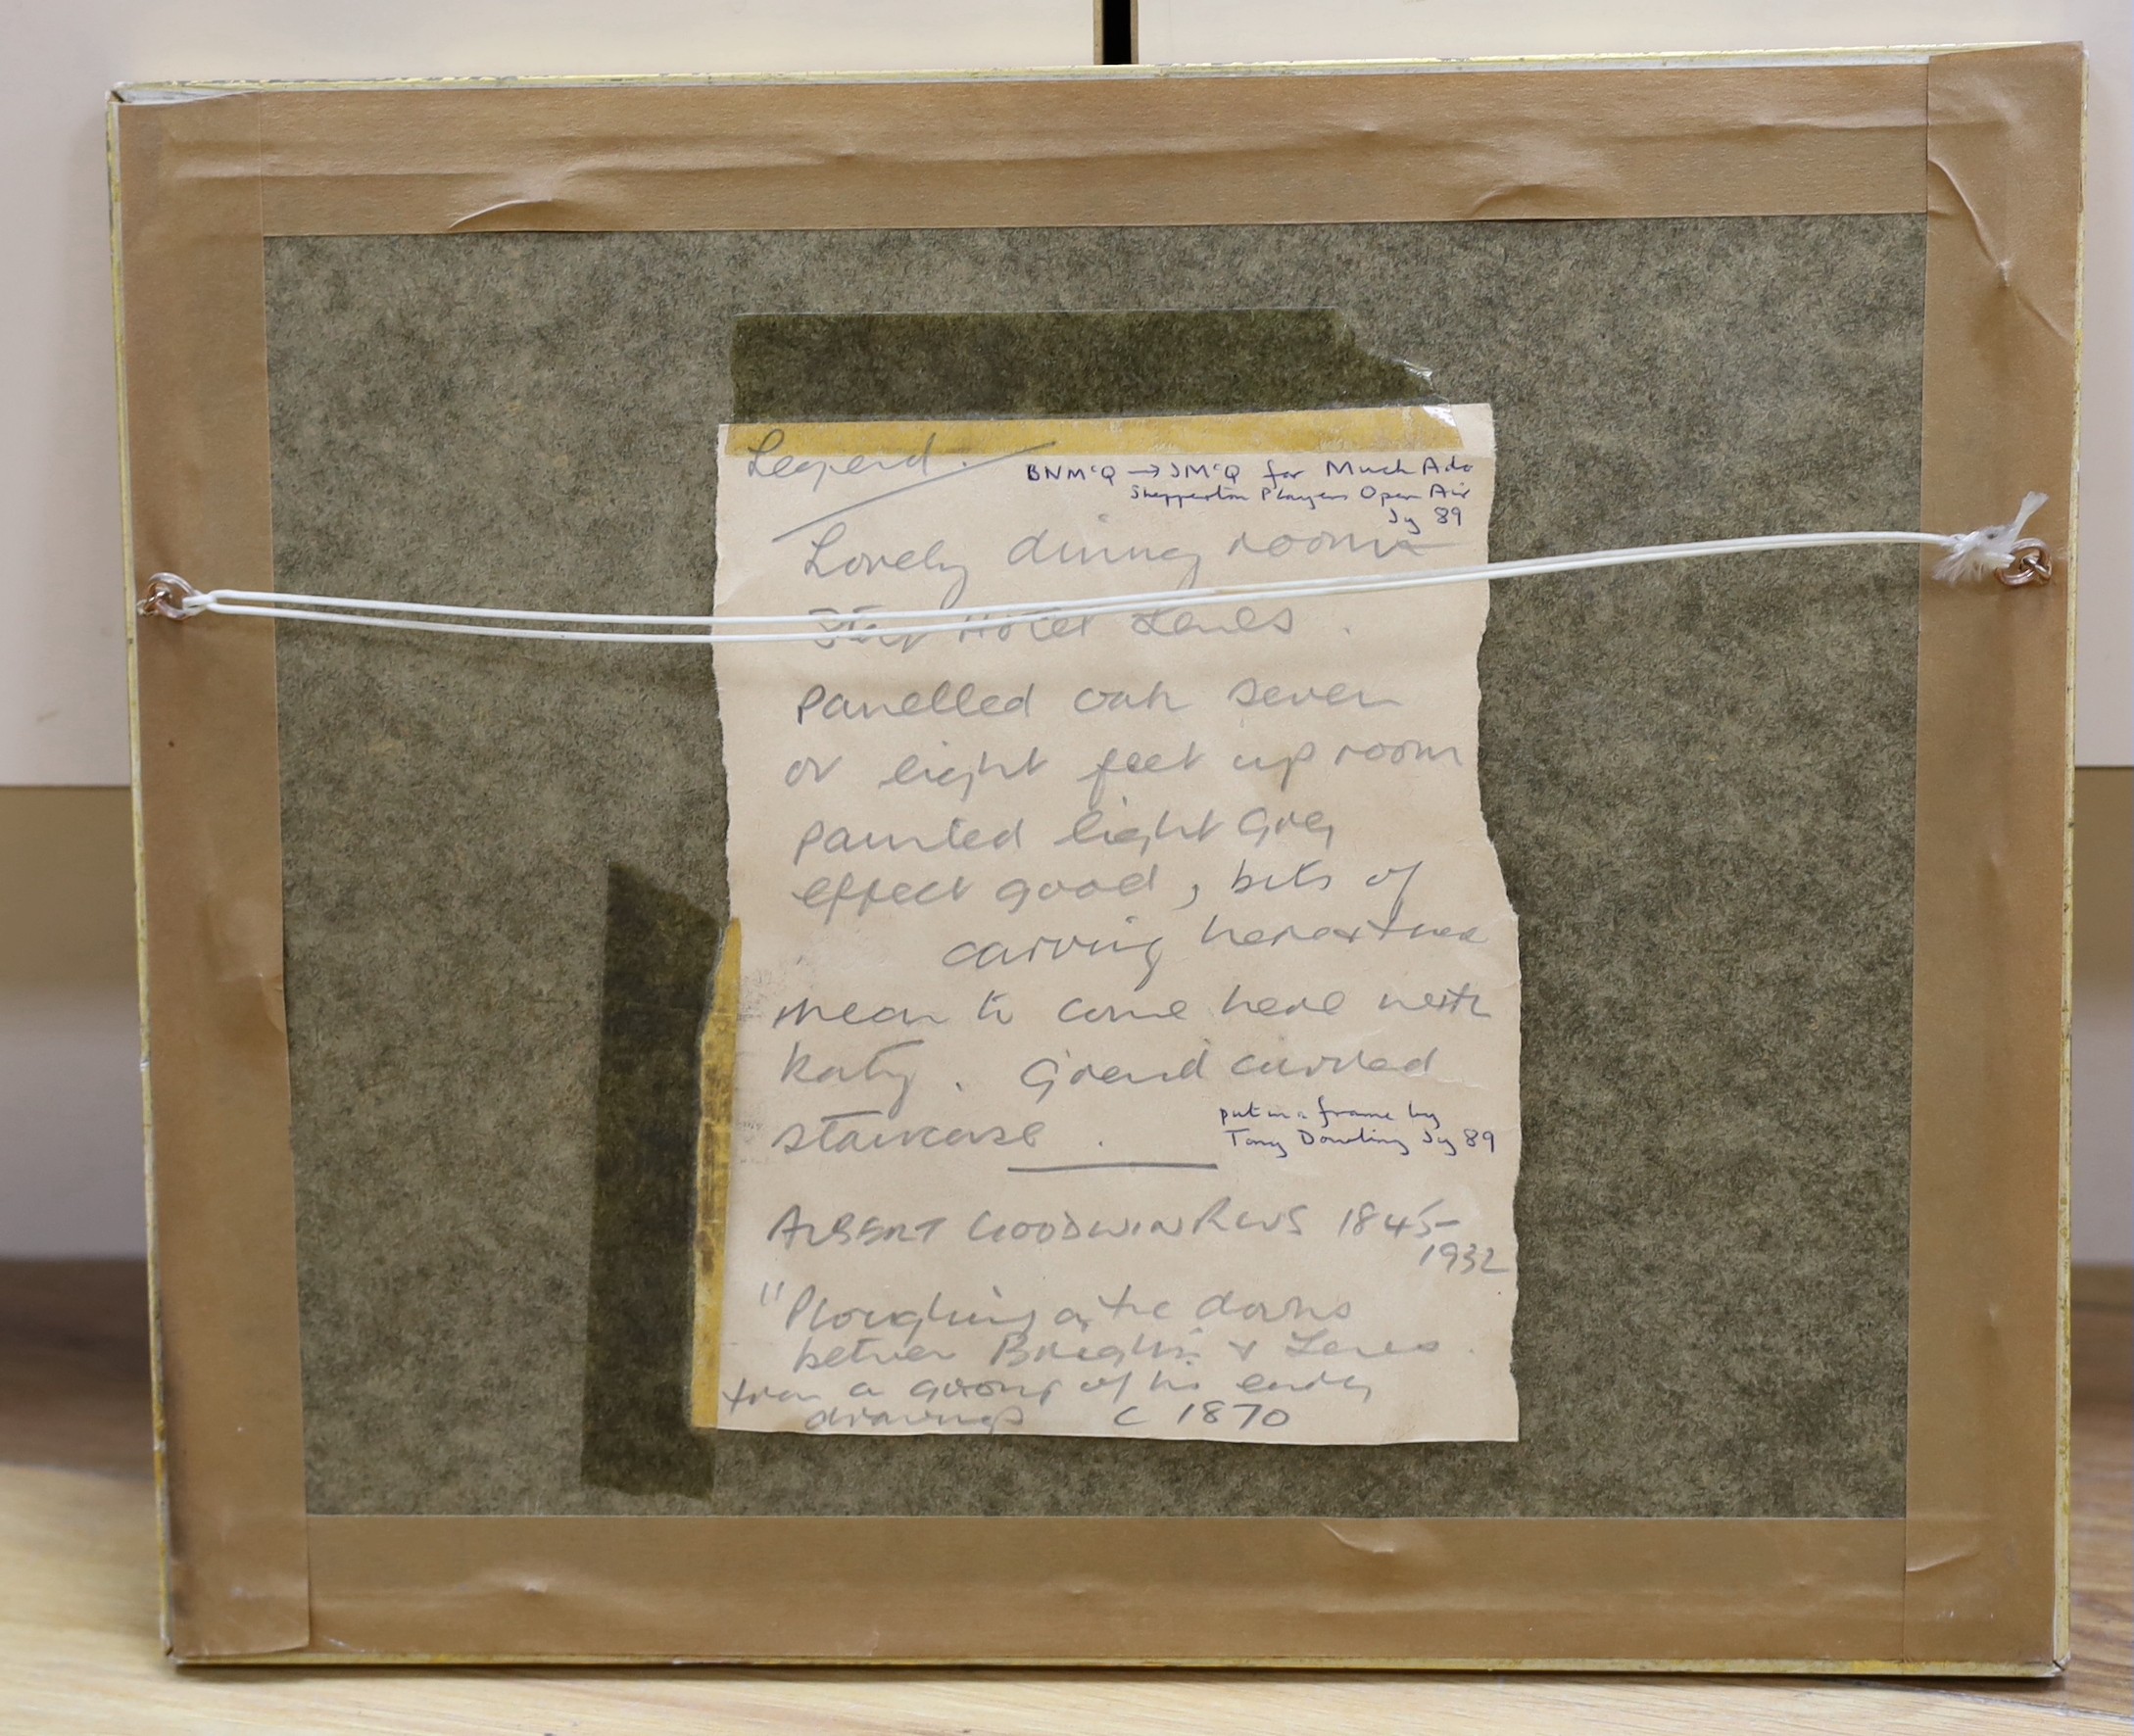 Legend.
BNMcQ → JMcQ for Much Ado
Shepperton Players Open Air
Jy 89
Lovely dining room
Star Hotel Lewes.
panelled oak seven
or eight feet up room
painted light grey
effect good, bits of
carving here & there
mean to come here with
Katy. Grand carved
staircase.
put in a frame by
Tony Dowling Jy 89
ALBERT GOODWIN RWS 1845-
1932
"Ploughing on the downs
between Brighton & Lewes.
from a group of his early
drawings C 1870